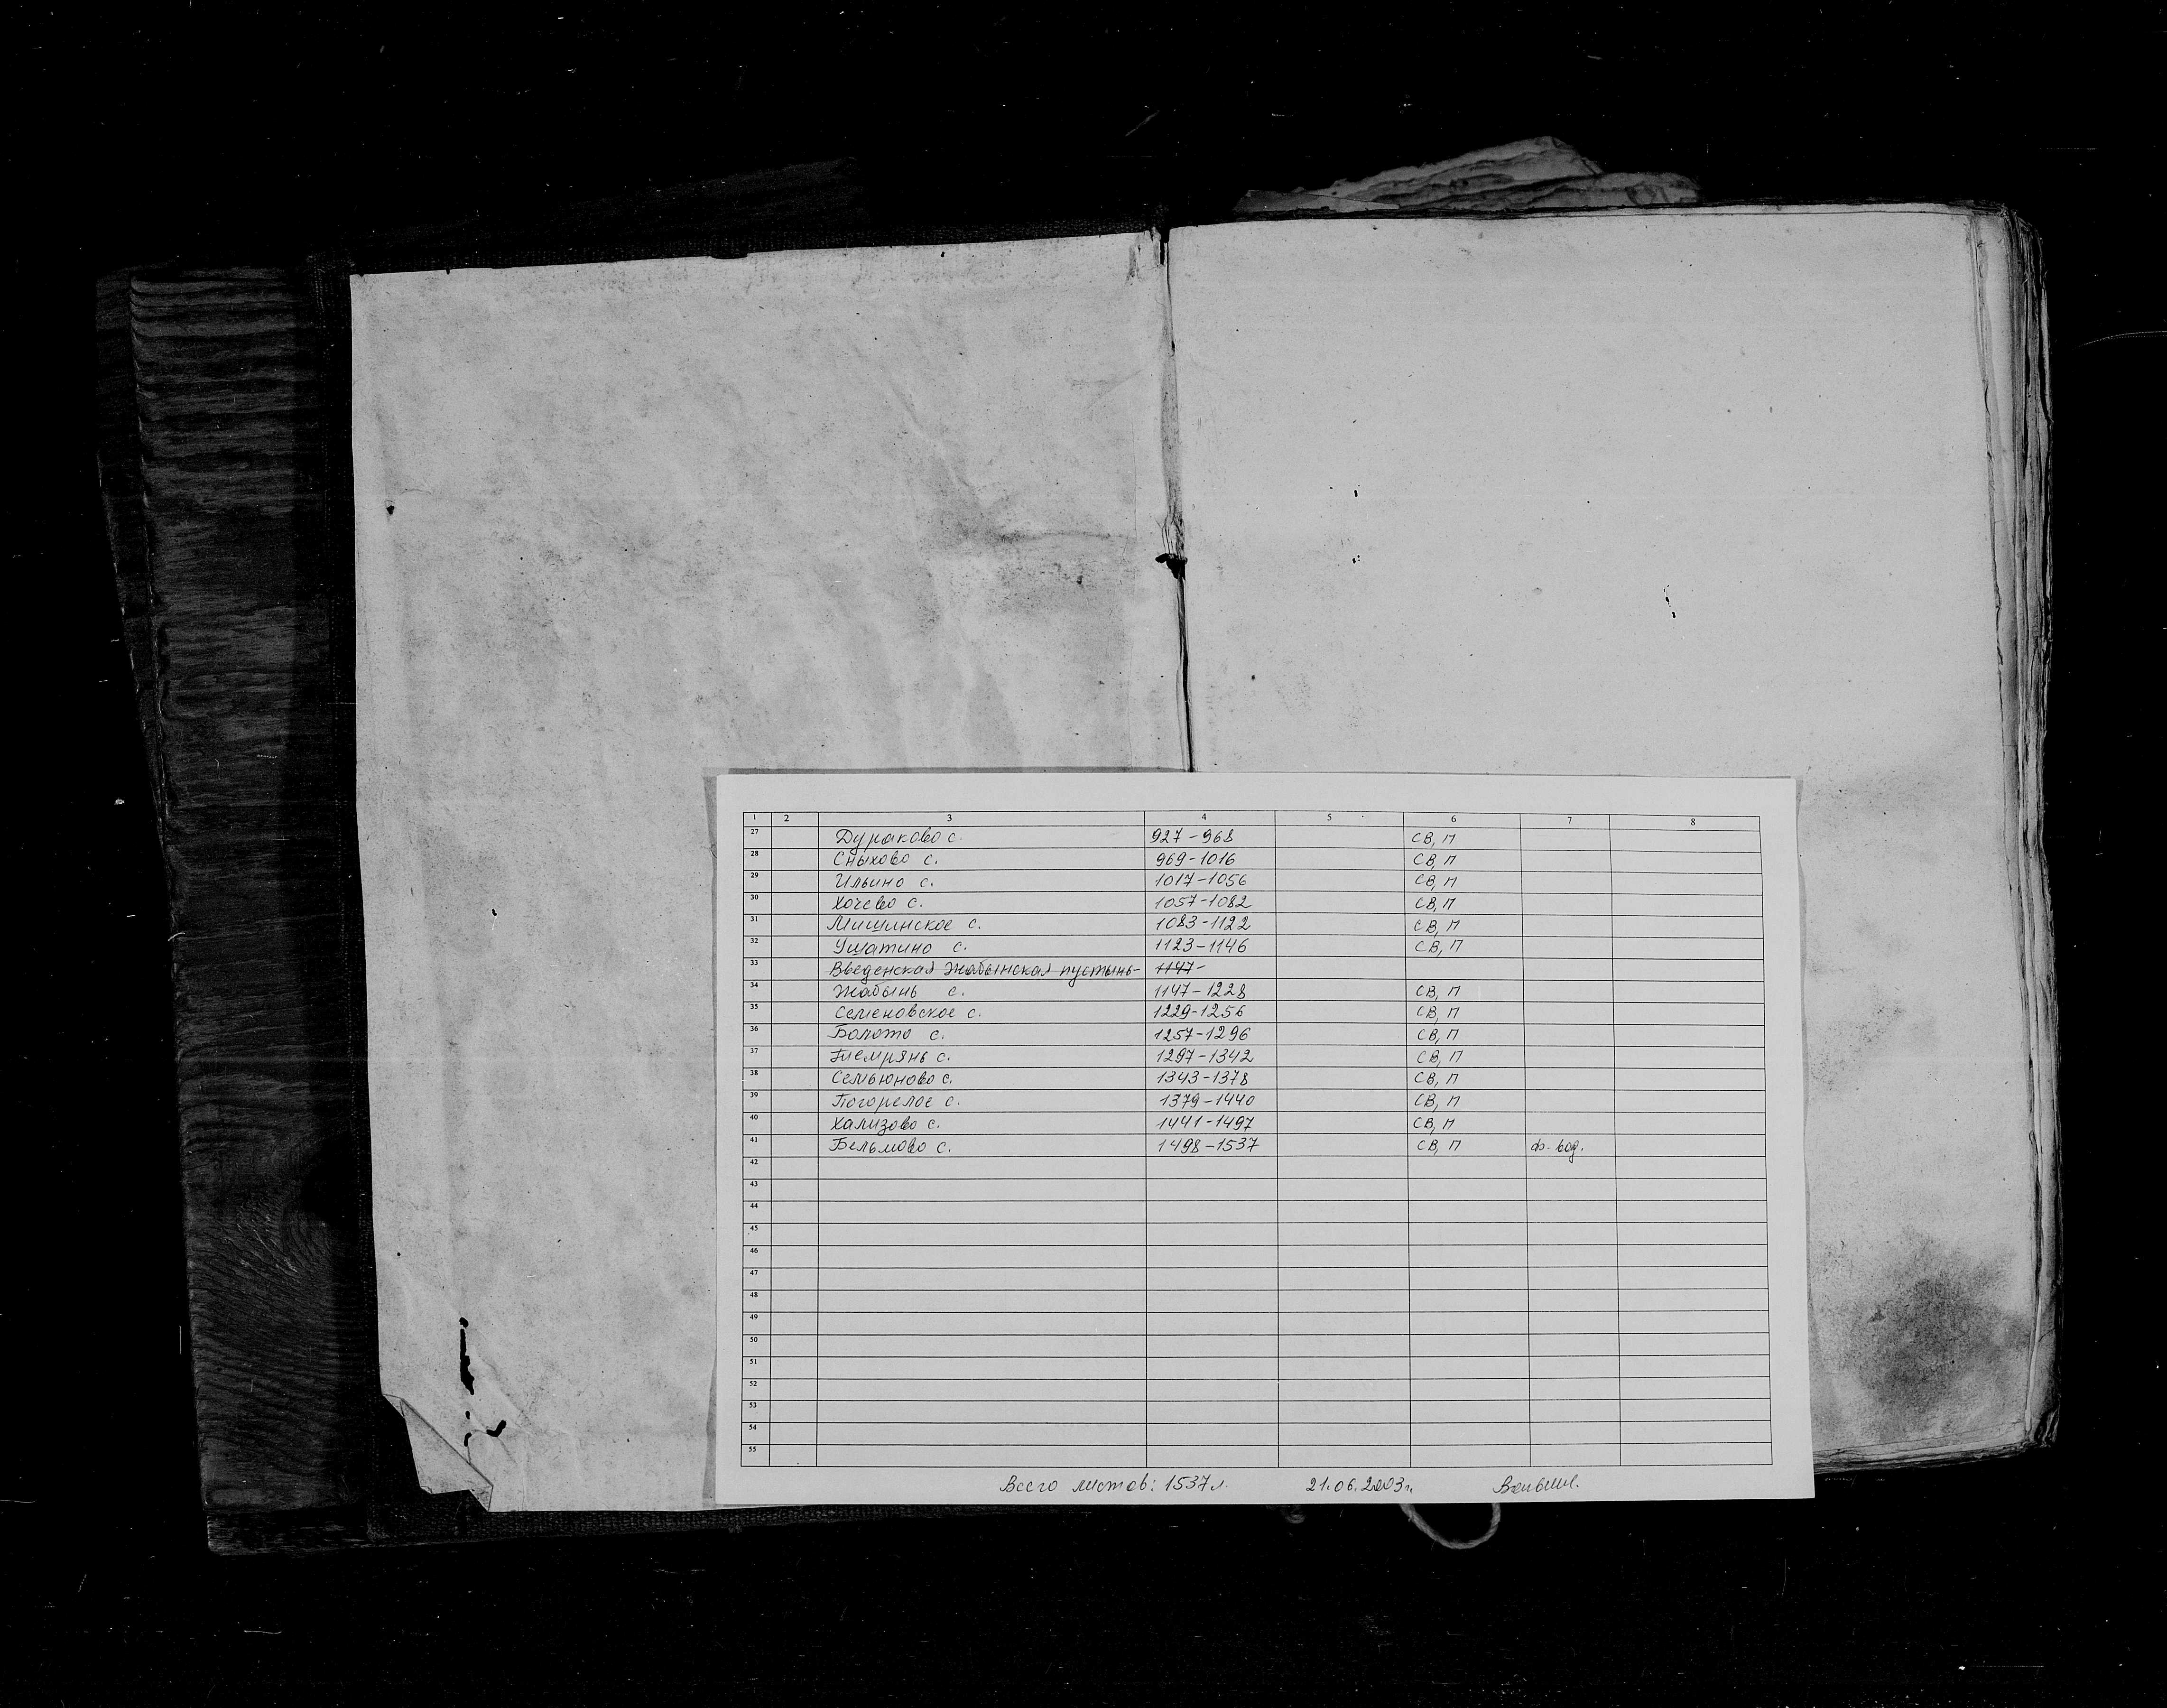 1 2 3 4 5 6 7 8
27 Дураково с. 927-968 СВ, П
28 Сныхово с. 969-1016 СВ, П
29 Ильино с. 1017-1056 СВ, П
30 Хочево с. 1057-1082 СВ, П
31 Мишинское с. 1083-1122 СВ, П
32 Ушатино с. 1123-1146 СВ, П
33 Введенская Жабынская пустынь- 1147-
34 Жабынь с. 1147-1228 СВ, П
35 Семеновское с. 1229-1256 СВ, П
36 Болото с. 1257-1296 СВ, П
37 с. 1297-1342 СВ, П
38 Семьюново с. 1343-1378 СВ, П
39 Погорелое с. 1379-1440 СВ, П
40 Хализово с. 1441-1497 СВ, П
41 Бельмово с. 1498-1537 СВ, П ф. вод.
42
43
44
45
46
47
48
49
50
51
52
53
54
55
Всего листов: 1537 л. 21.06.2003 г.